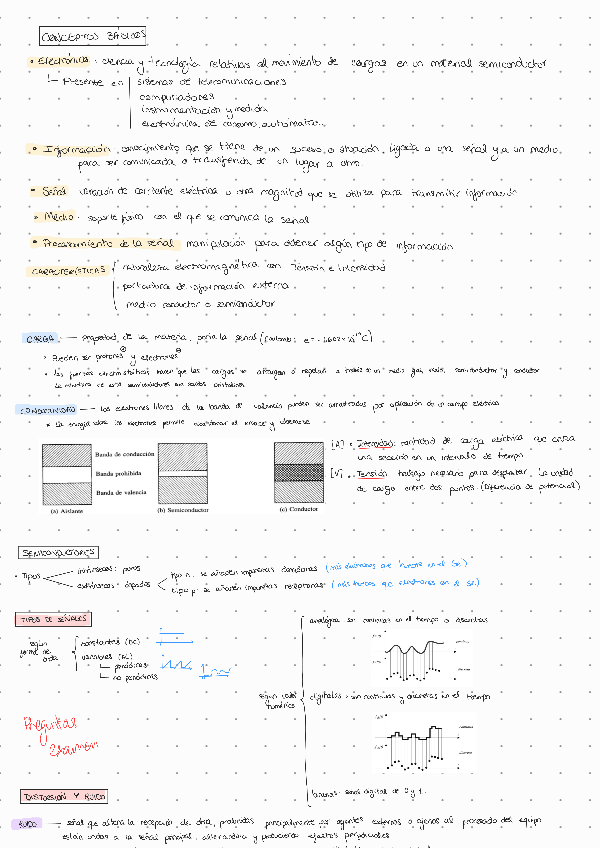 CONCEPTOS BÁSICOS
• Electrónica: ciencia y tecnología relativas al movimiento de cargas en un material semiconductor
Presente en sistemas de telecomunicaciones
computadores
instrumentación y medida
electrónica de consumo, automática...
• Información: conocimiento que se tiene de un suceso o situación, ligada a una señal y a un medio,
para ser comunicada o transferida de un lugar a otro.
• Señal: variación de corriente eléctrica u otra magnitud que se utiliza para transmitir información
• Medio: soporte físico con el que se comunica la señal
• Procesamiento de la señal: manipulación para obtener algún tipo de información
CARACTERÍSTICAS naturaleza electromagnética con tensión e intensidad
portadora de información externa
medio conductor o semiconductor
CARGA — propiedad de la materia, porta la señal (culomb:
• Pueden ser protones y electrones
• las fuerzas electrostáticas hacen que las "cargas" se atraigan o repelan a través de un medio
CONDUCTIVIDAD — los electrones libres de la banda de valencia pueden ser arrastrados por aplicación de un campo eléctrico
[A] • Intensidad: cantidad de carga eléctrica que cruza
una sección en un intervalo de tiempo
[V] • Tensión: trabajo necesario para desplazar la unidad
de carga entre dos puntos. (Diferencia de potencial)
Banda de conducción
Banda prohibida
Banda de valencia
(a) Aislante (b) Semiconductor (c) Conductor
SEMICONDUCTORES
• Tipos intrínsecos: puros
extrínsecos: dopados
tipo n: se añaden impurezas donadoras (más electrones que huecos en el sc.)
tipo p: se añaden impurezas receptoras (más huecos que electrones en el sc.)
TIPOS DE SEÑALES
según forma de onda
constantes (DC)
variables (AC)
periódicas
no periódicas
según valor numérico
analógica: son continuas en el tiempo o discretas
digitales: sin continuas y discretas en el tiempo
binarias: señal digital de 0 y 1.
Preguntas
Examen
DISTORSIÓN Y RUIDO
RUIDO — señal que altera la recepción de otra, producidas principalmente por agentes externos o ajenos al procesado del equipo
están unidas a la señal principal, alterandola y produciendo efectos perjudiciales